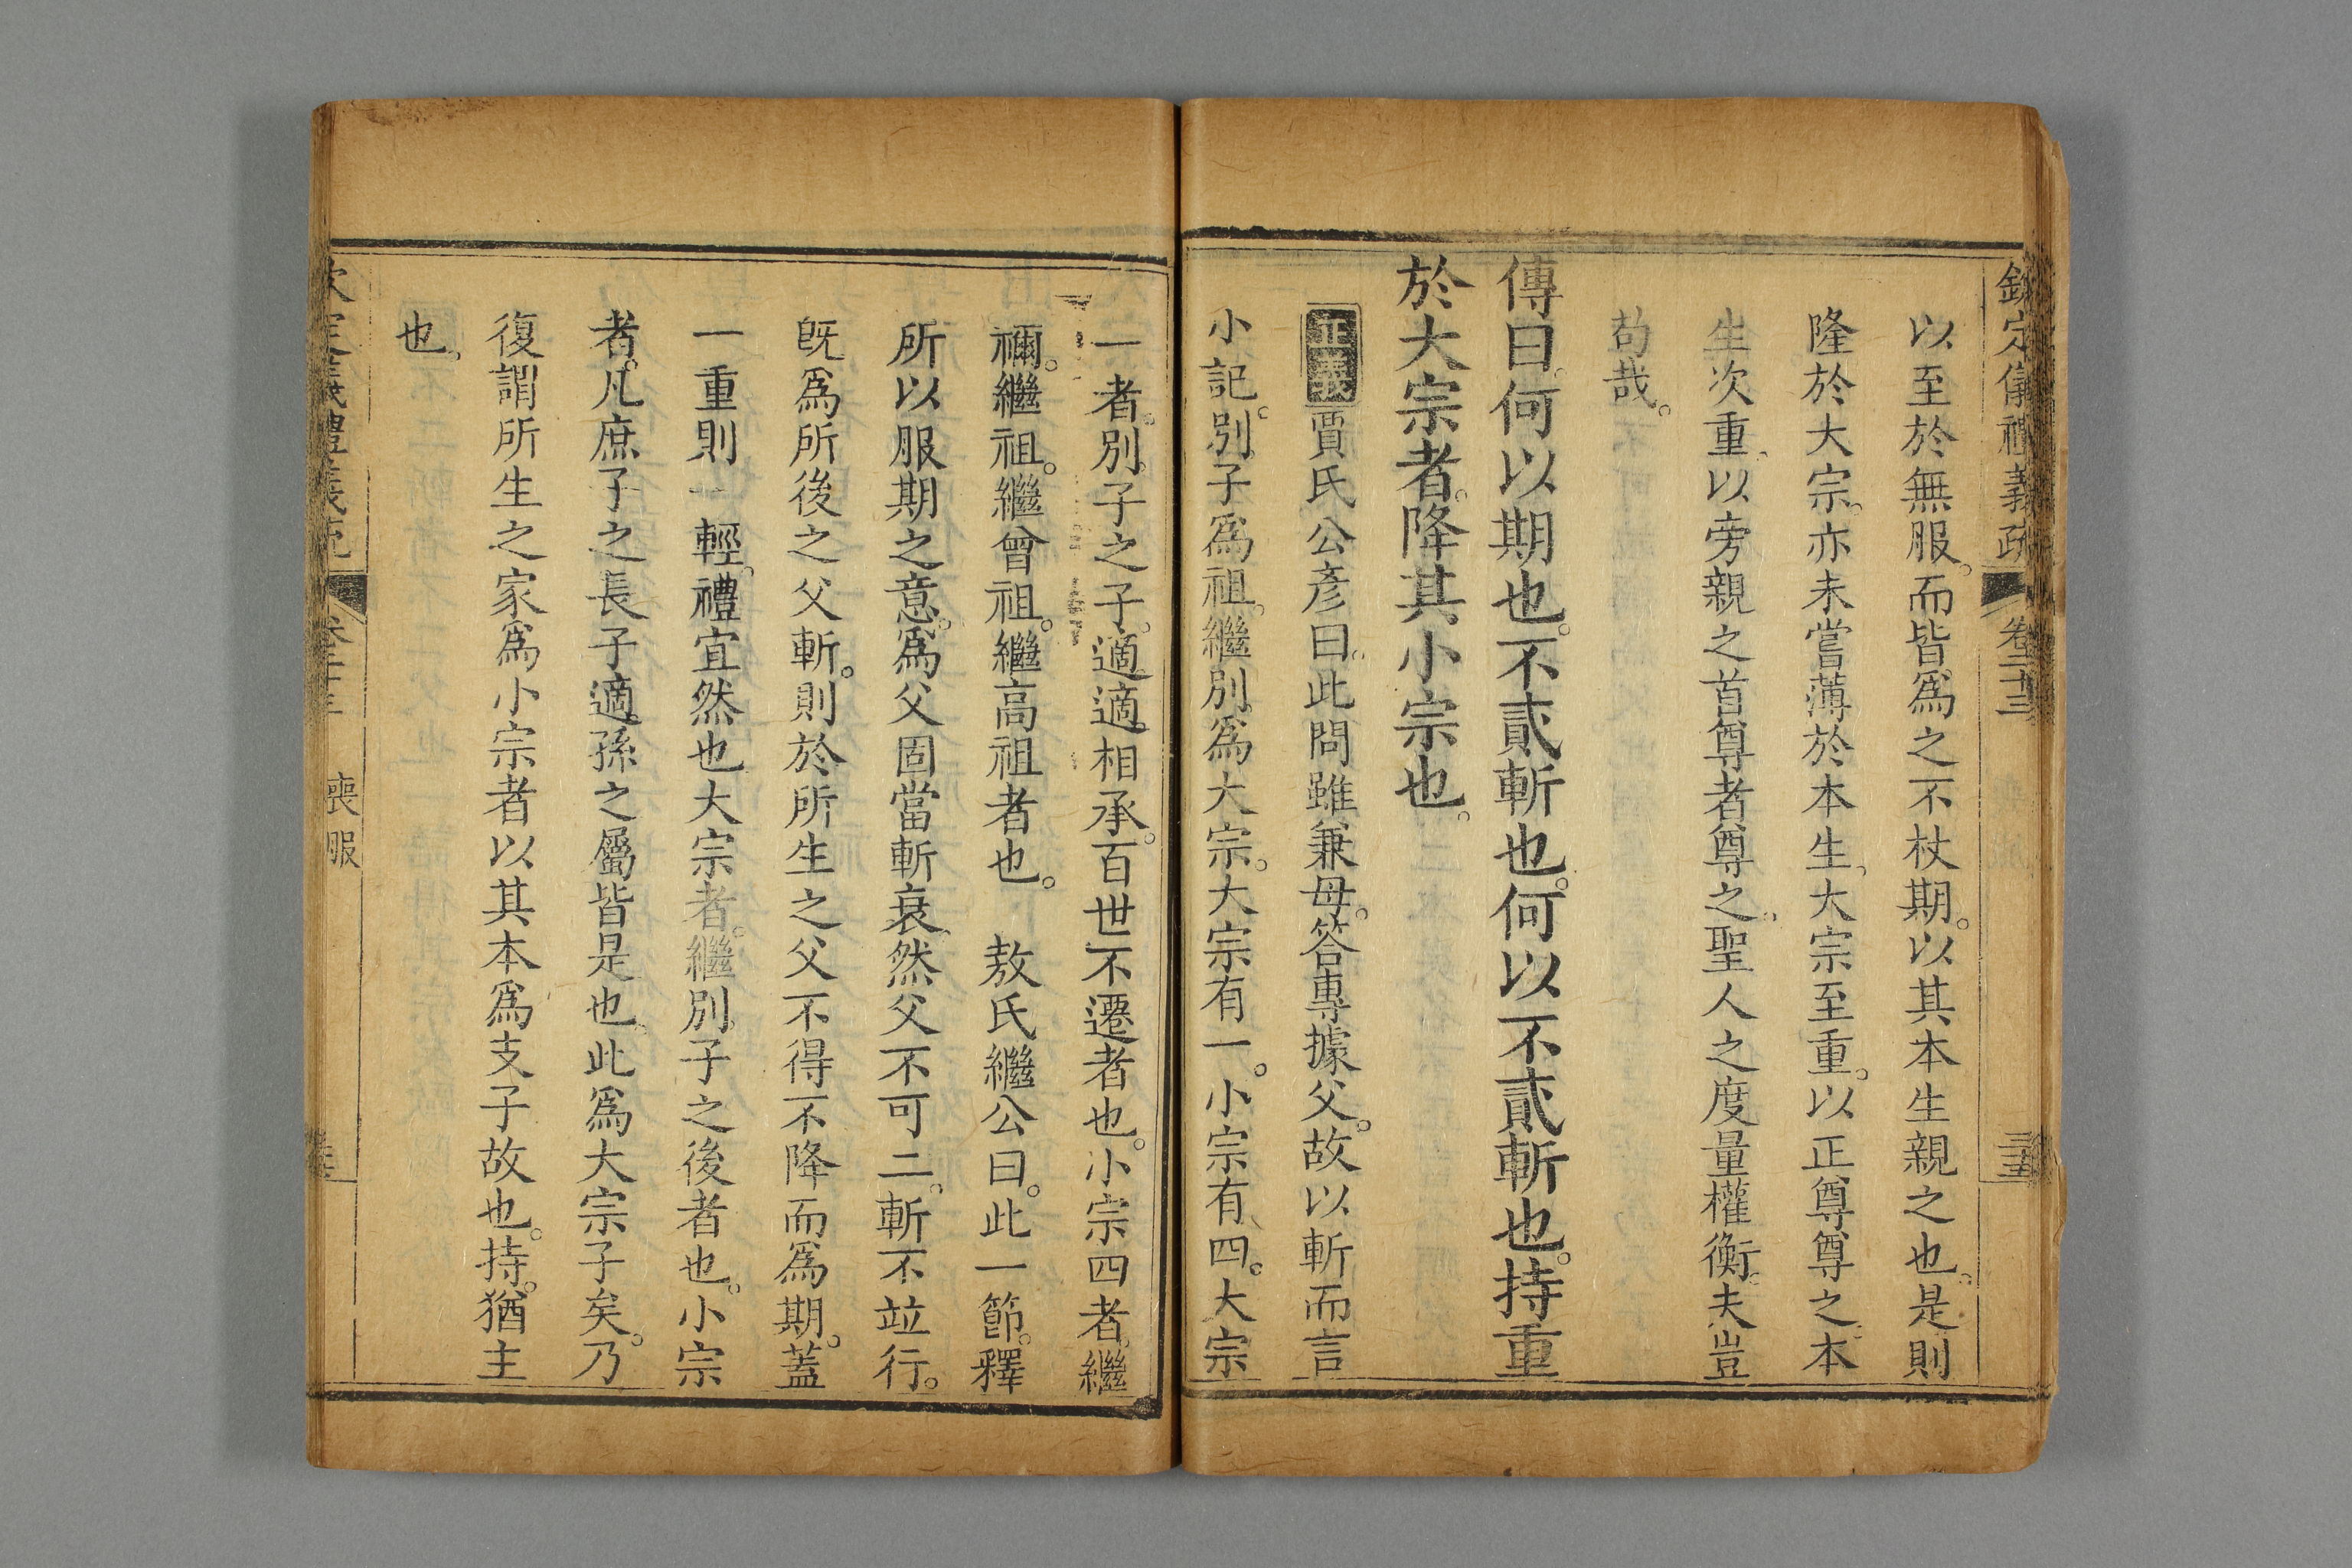 欽定儀禮義疏 卷二十三
以至於無服。而皆爲之不杖期。以其本生親之也。是則
隆於大宗。亦未嘗薄於本生。大宗至重。以正尊尊之。本
生次重。以旁親之首尊者尊之。聖人之度量權衡。夫豈
苟哉。
傳曰。何以期也。不貳斬也。何以不貳斬也。持重
於大宗者。降其小宗也。
正義 賈氏公彥曰。此問雖兼母。答專據父。故以斬而言
小記。別子爲祖。繼別爲大宗。大宗有一。小宗有四。大宗
一者。別子之子。適適相承。百世不遷者也。小宗四者。繼
禰。繼祖。繼曾祖。繼高祖者也。 敖氏繼公曰。此一節。釋
所以服期之意。爲父固當斬衰。然父不可二。斬不竝行。
旣爲所後之父斬。則於所生之父不得不降而爲期。蓋
一重則一輕。禮宜然也大宗者。繼別子之後者也。小宗
者。凡庶子之長子適孫之屬皆是也。此爲大宗子矣。乃
復謂所生之家爲小宗者以其本爲支子故也。持。猶主
也。
喪服